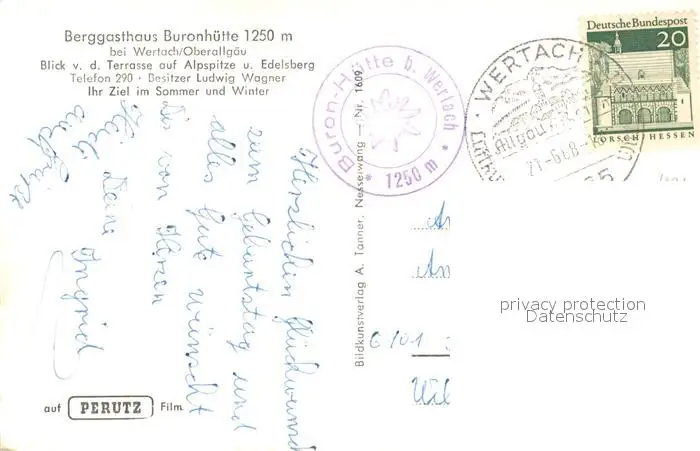 Berggasthaus Buronhütte 1250 m
bei Wertach/Oberallgäu
Blick v. d. Terrasse auf Alpspitze u. Edelsberg
Telefon 290 · Besitzer Ludwig Wagner
Ihr Ziel im Sommer und Winter
Herzlichen Glückwunsch
zum Geburtstag und
alles Gute wünscht
Dir von Herzen
Deine Ingrid
Heidi
auf PERUTZ Film
Bildkunstverlag A. Tanner, Nesselwang — Nr. 1609
Buron-Hütte b. Wertach
* 1250 m *
WERTACH
Allgäu
Deutsche Bundespost
20
LORSCH / HESSEN
An
An
privacy protection
Datenschutz